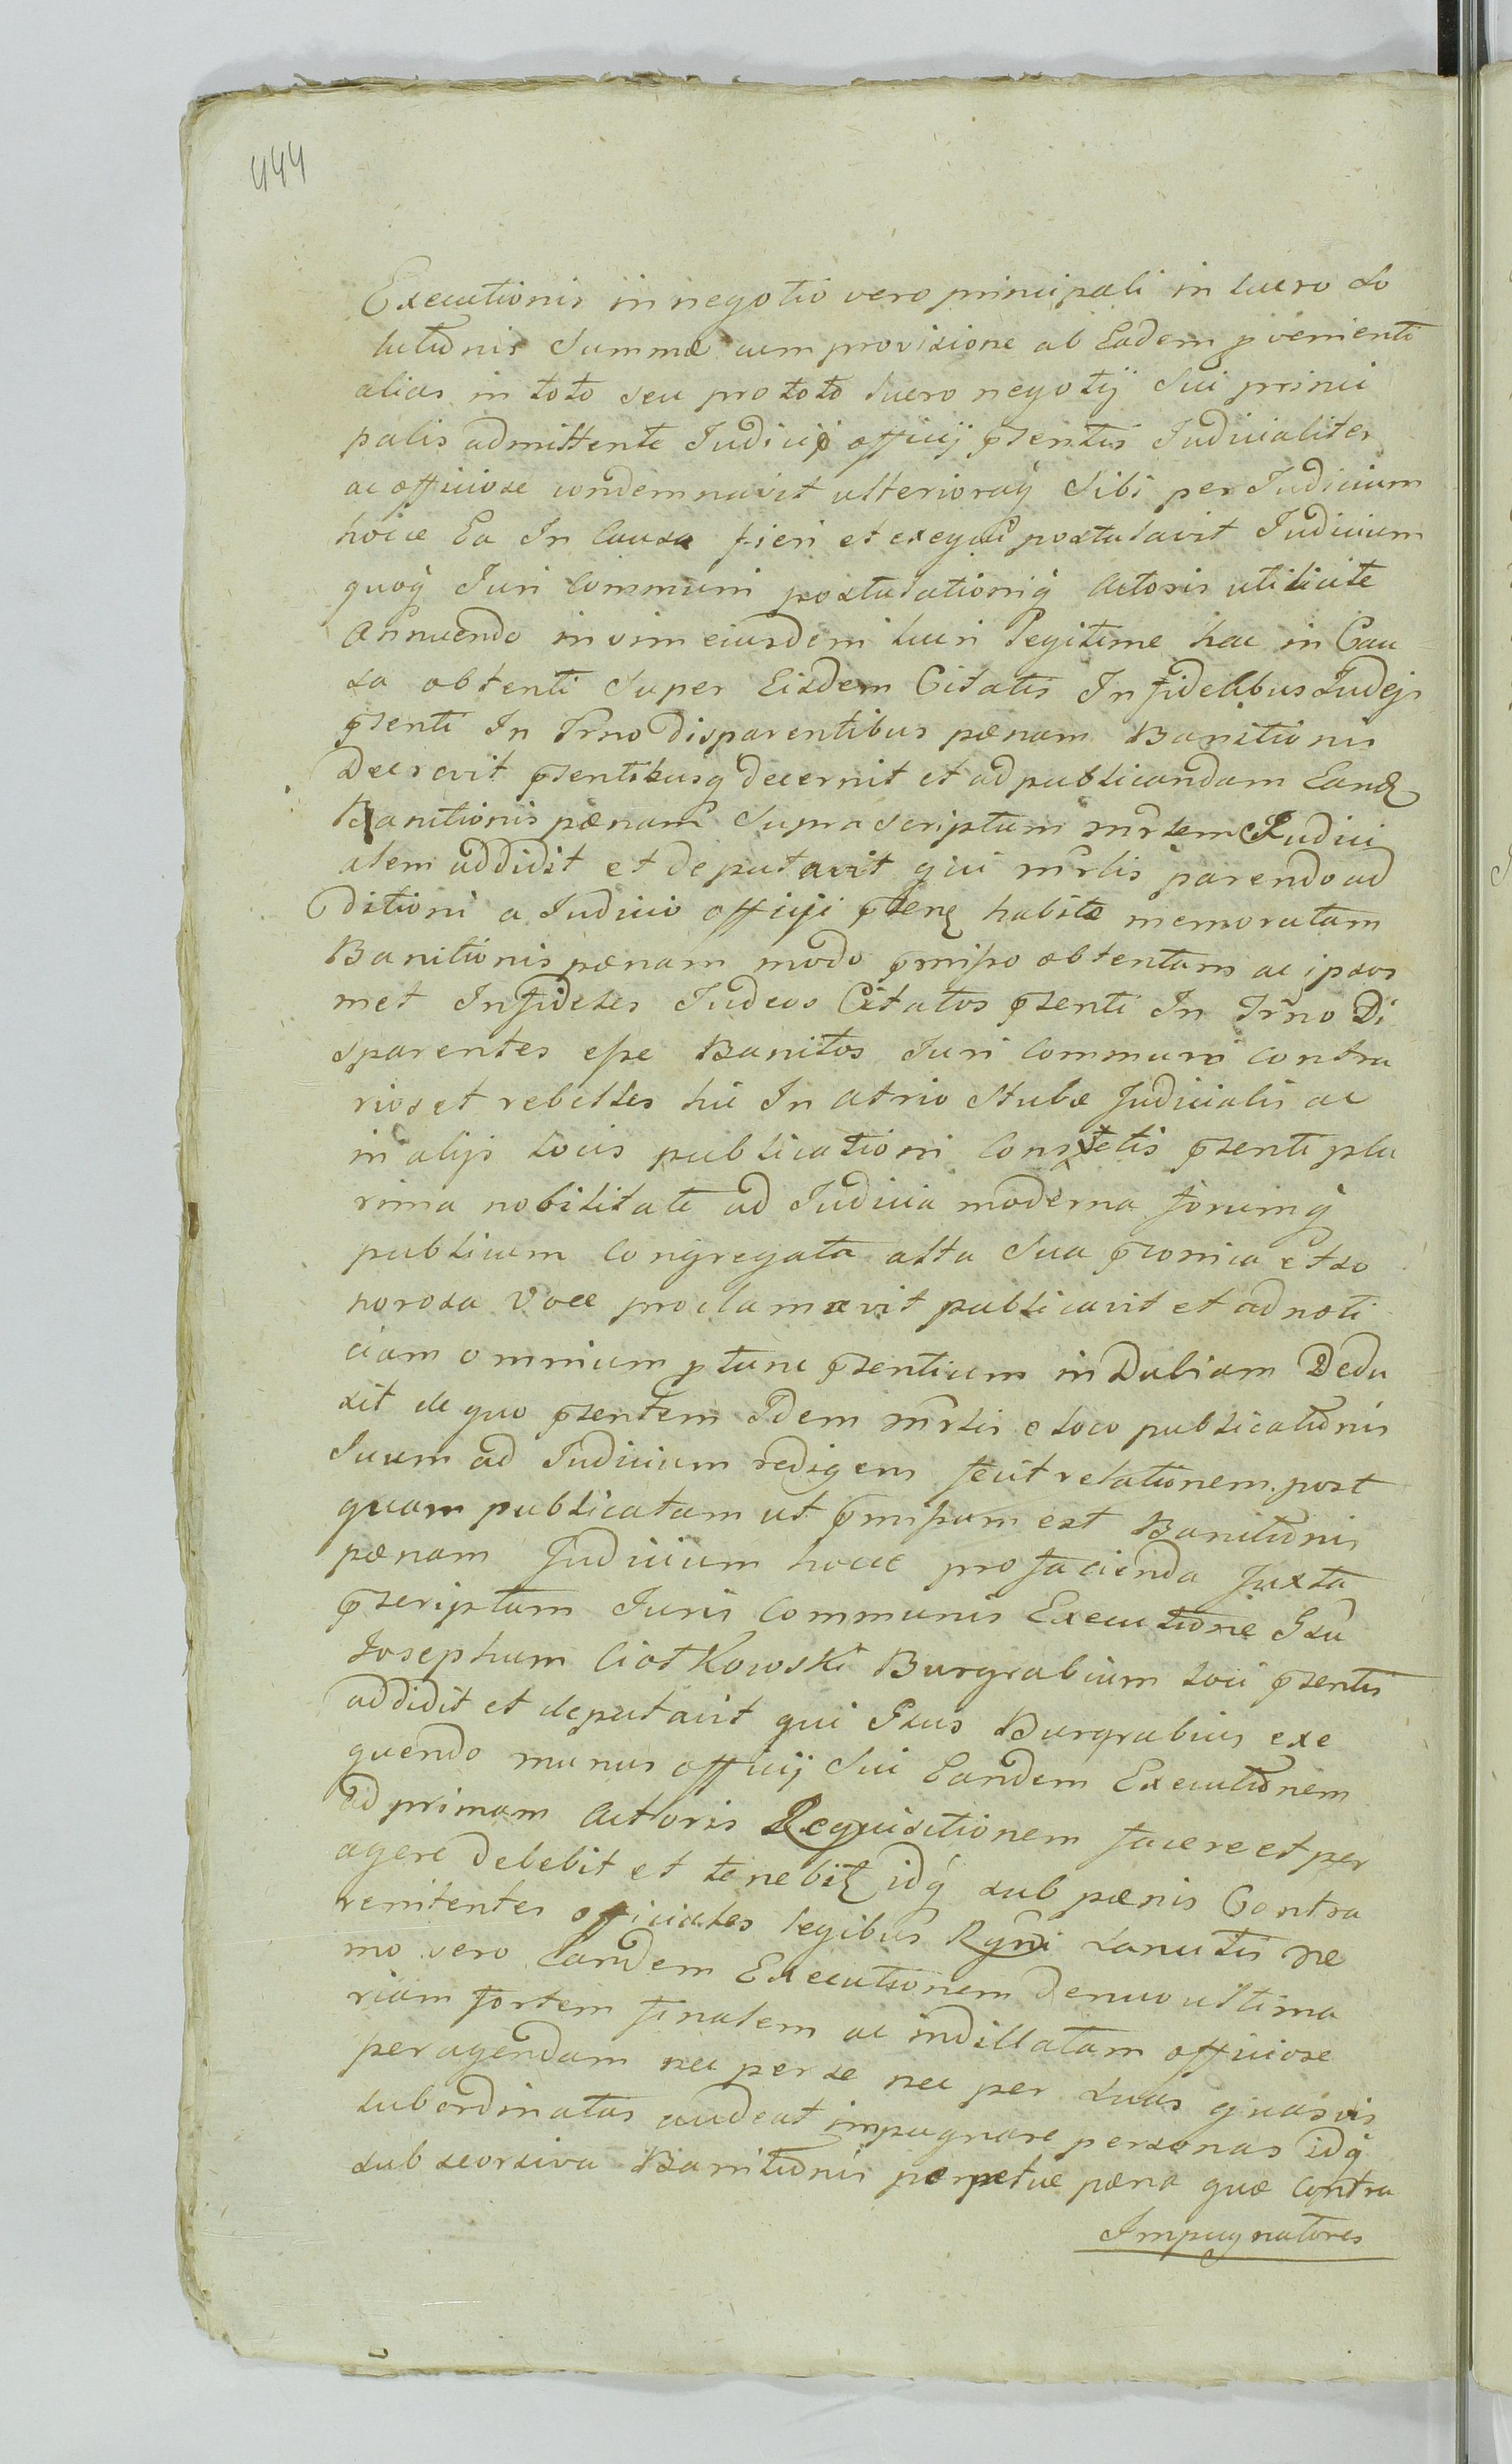 444
Executionis in negotio vero principali in lucro So
lutiōnis Summæ cum provisione ab Eadem pveniēnti
alias in toto seu pro toto lucro negotij Sui princi
palis admittente Judicij officij pr̄sentis Judicialiter
ac officiose condemnavit ulterioraq̇ Sibi per Judicium
hocce Ea In Causa fieri et exequi postulavit Judicium
quoq̇ Juri Communi postulationiq̇ Actoris uti licitæ
Annuendo in vim eiusdem lucri legitime hac in Cau
sa obtenti Super Eisdem Citatis Infidelibus Judejs
pr̄senti In Trno disparentibus pœnam Banitionis
Decrevit pr̄sentibusq decernit et ad publicandam Eand
Banitionis pœnam Suprascriptum mr̄lem Judici
alem addidit et deputavit qui mr̄lis parendo ad
ditioni a Judicio officij pr̄sen habitæ memoratam
Banitionis pœnam modo pr̄misso obtentam ac ipsos
met Infideles Judeos Citatos pr̄senti In Tr̄no Di
sparentes esse Banitos Juri Communi contra
rios et rebelles hic In atrio Stubæ Judicialis ac
in alijs locis publicationi Consvetis pr̄senti plu
rima nobilitate ad Judicia moderna forumq̇
publicum Congregata alta Sua pr̄conica et so
norosa Voce proclamavit publicavit et ad noti
ciam omnium ptunc pr̄sentium indubiam Dedu
xit de quo pr̄sentem Idem mr̄lis e loco publicatiōnis
Suum ad Judicium redigens fecit relationem post
quam publicatam ut pr̄missum est Banitiōnis
pœnam Judicium hocce pro facienda Juxta
pr̄scriptum Juris Communis Executione Gsū
Josephum Ciotkowski Burgrabium loci pr̄sentis
addidit et deputavit qui Gsus Burgrabius exe
quendo munus officij Sui Eandem Executiōnem
ad primam Actoris Requisitionem facere et per
agere debebit et tenebit idq̇ sub pœnis Contra
renitentes officiales legibus Rgni sancitis ne
mo vero Eandem Executionem denuo ultima
riam fortem finalem ac indillatam officiose
peragendam nec per se nec per suas quasvis
subordinatas audeat impugnare personas idq̇
sub seorsiva Banitiōnis perpetuæ pœna quæ Contra
Impugnatores